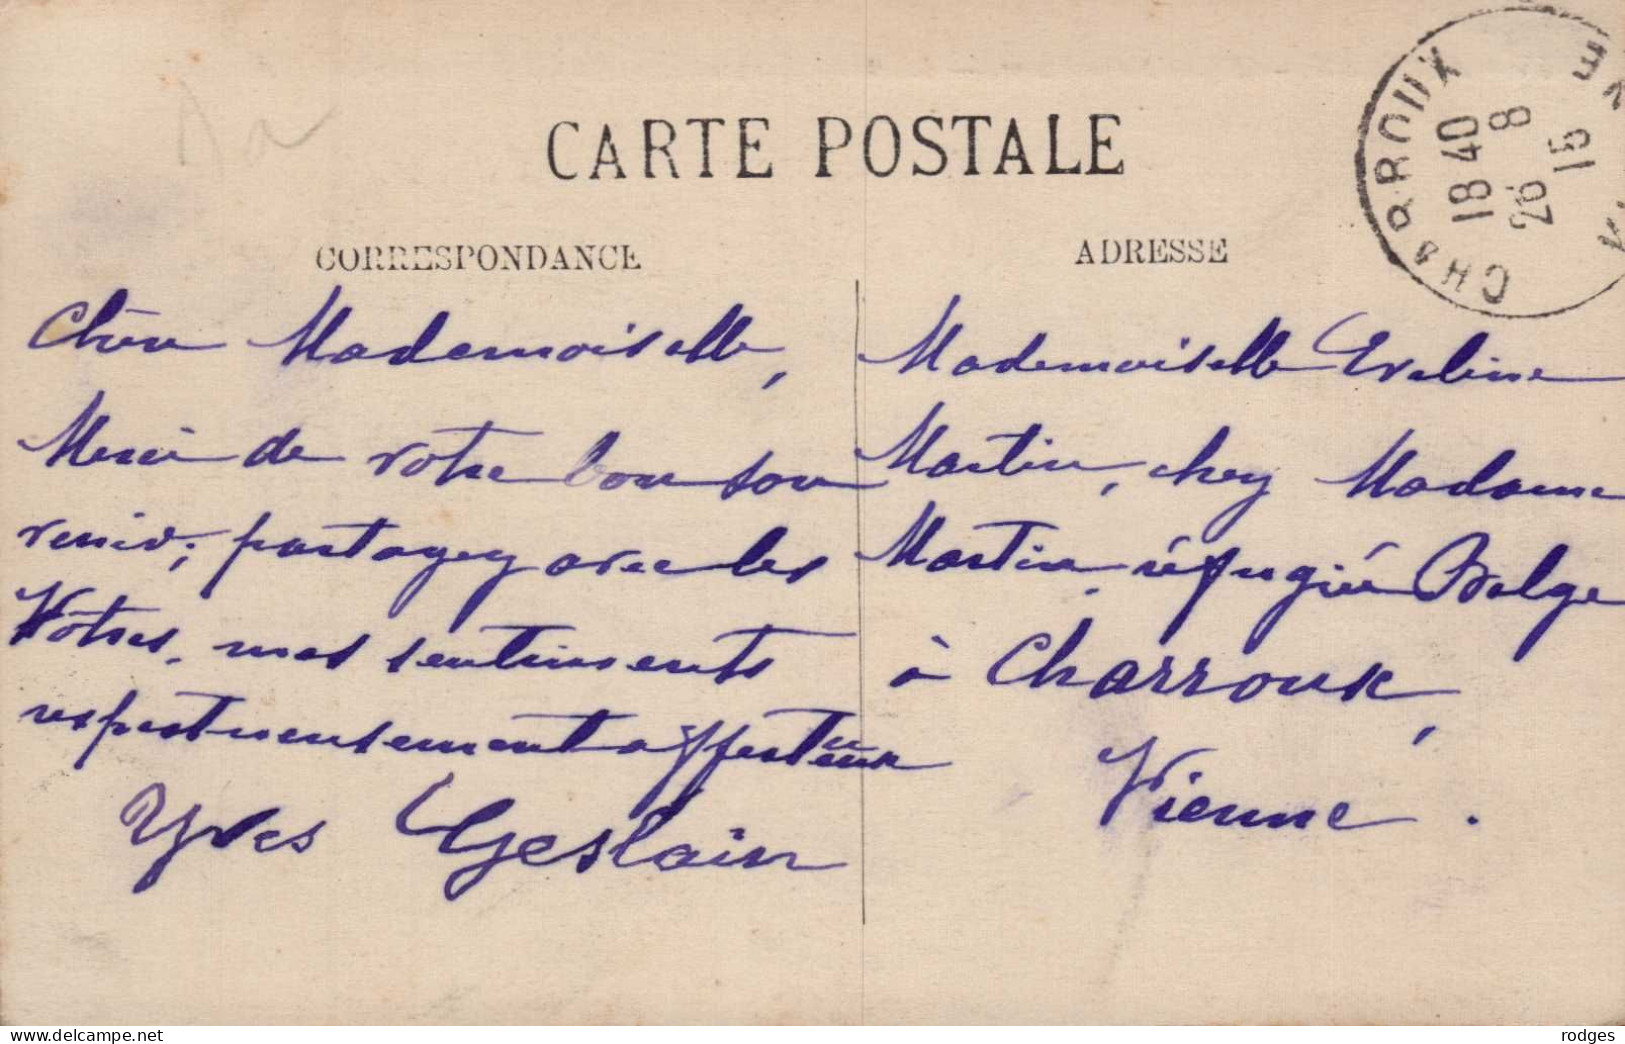 CARTE POSTALE
CORRESPONDANCE
Chère Mademoiselle,
Merci de votre bon sou
venir; partagez avec les
Vôtres, mes sentiments
respectueusement affectueux
Yves Geslain
ADRESSE
Mademoiselle Eveline
Martin, chez Madame
Martin, réfugiée Belge
à Charroux,
Vienne.
CHARROUX
18 40
26 8
15
rodges